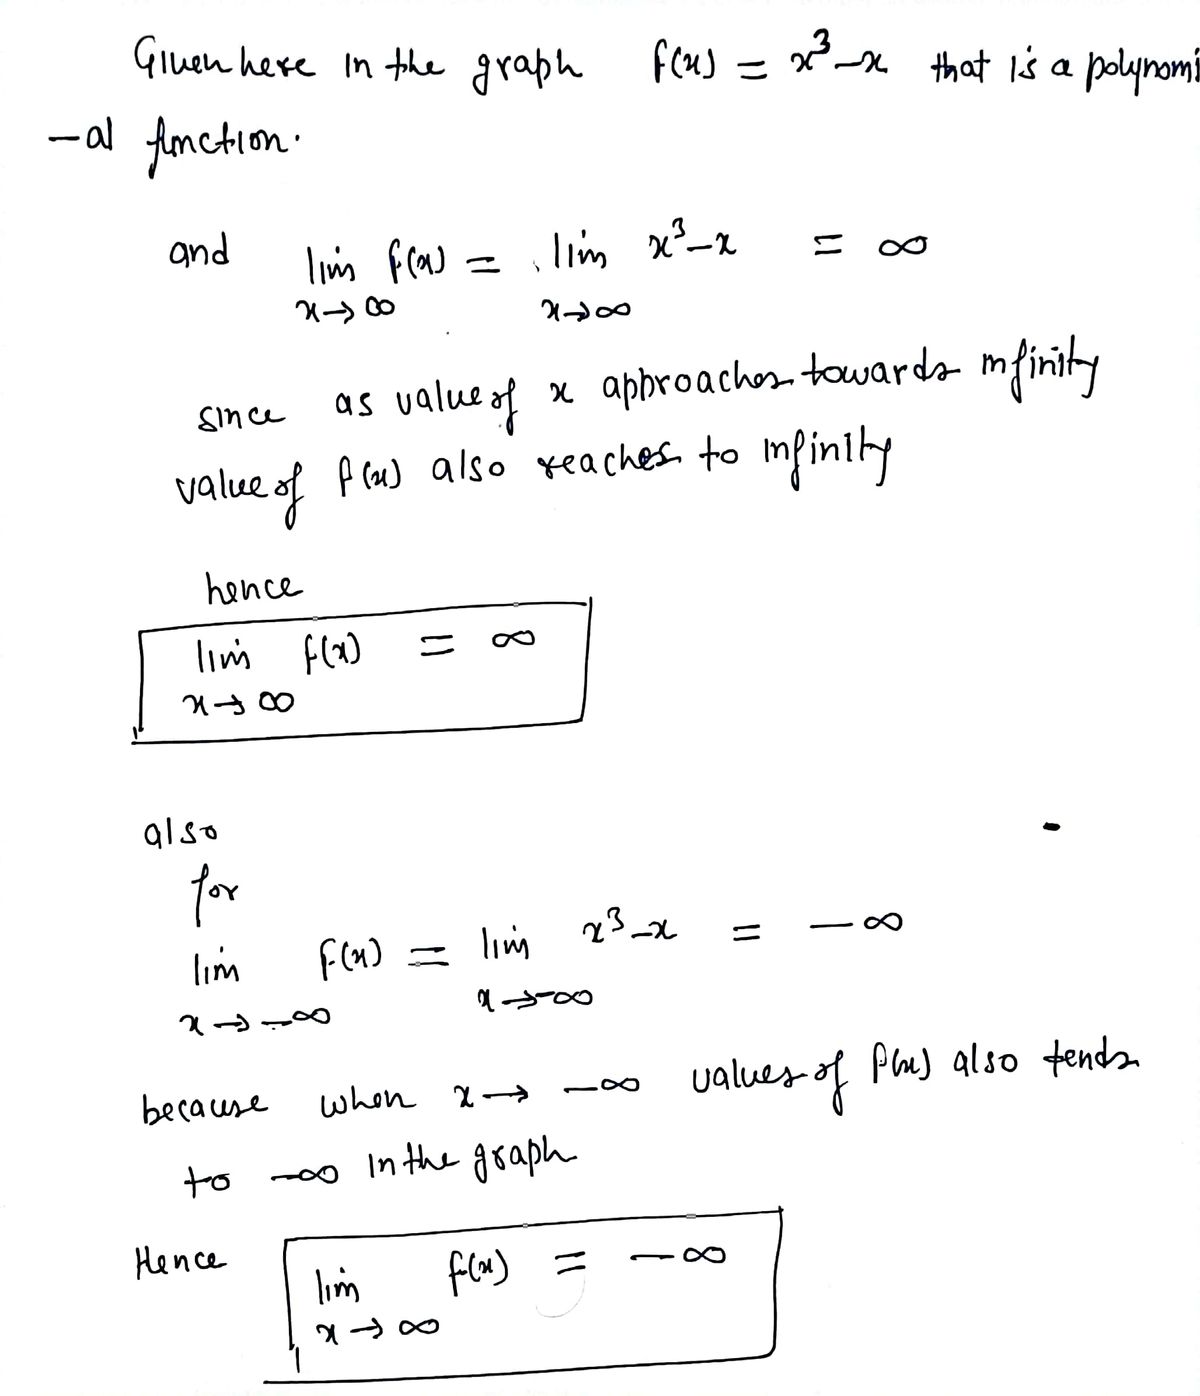 Given here in the graph f(x) = x³-x that is a polynomi
-al function.
and lim f(x) = lim x³-x = ∞
x→∞ x→∞
since as value of x approaches towards infinity
value of f(x) also reaches to infinity
hence
lim f(x) = ∞
x→∞
also
for
lim f(x) = lim x³-x = -∞
x→-∞ x→-∞
because when x→ -∞ values of f(x) also tends
to -∞ in the graph
Hence
lim f(x) = -∞
x→∞